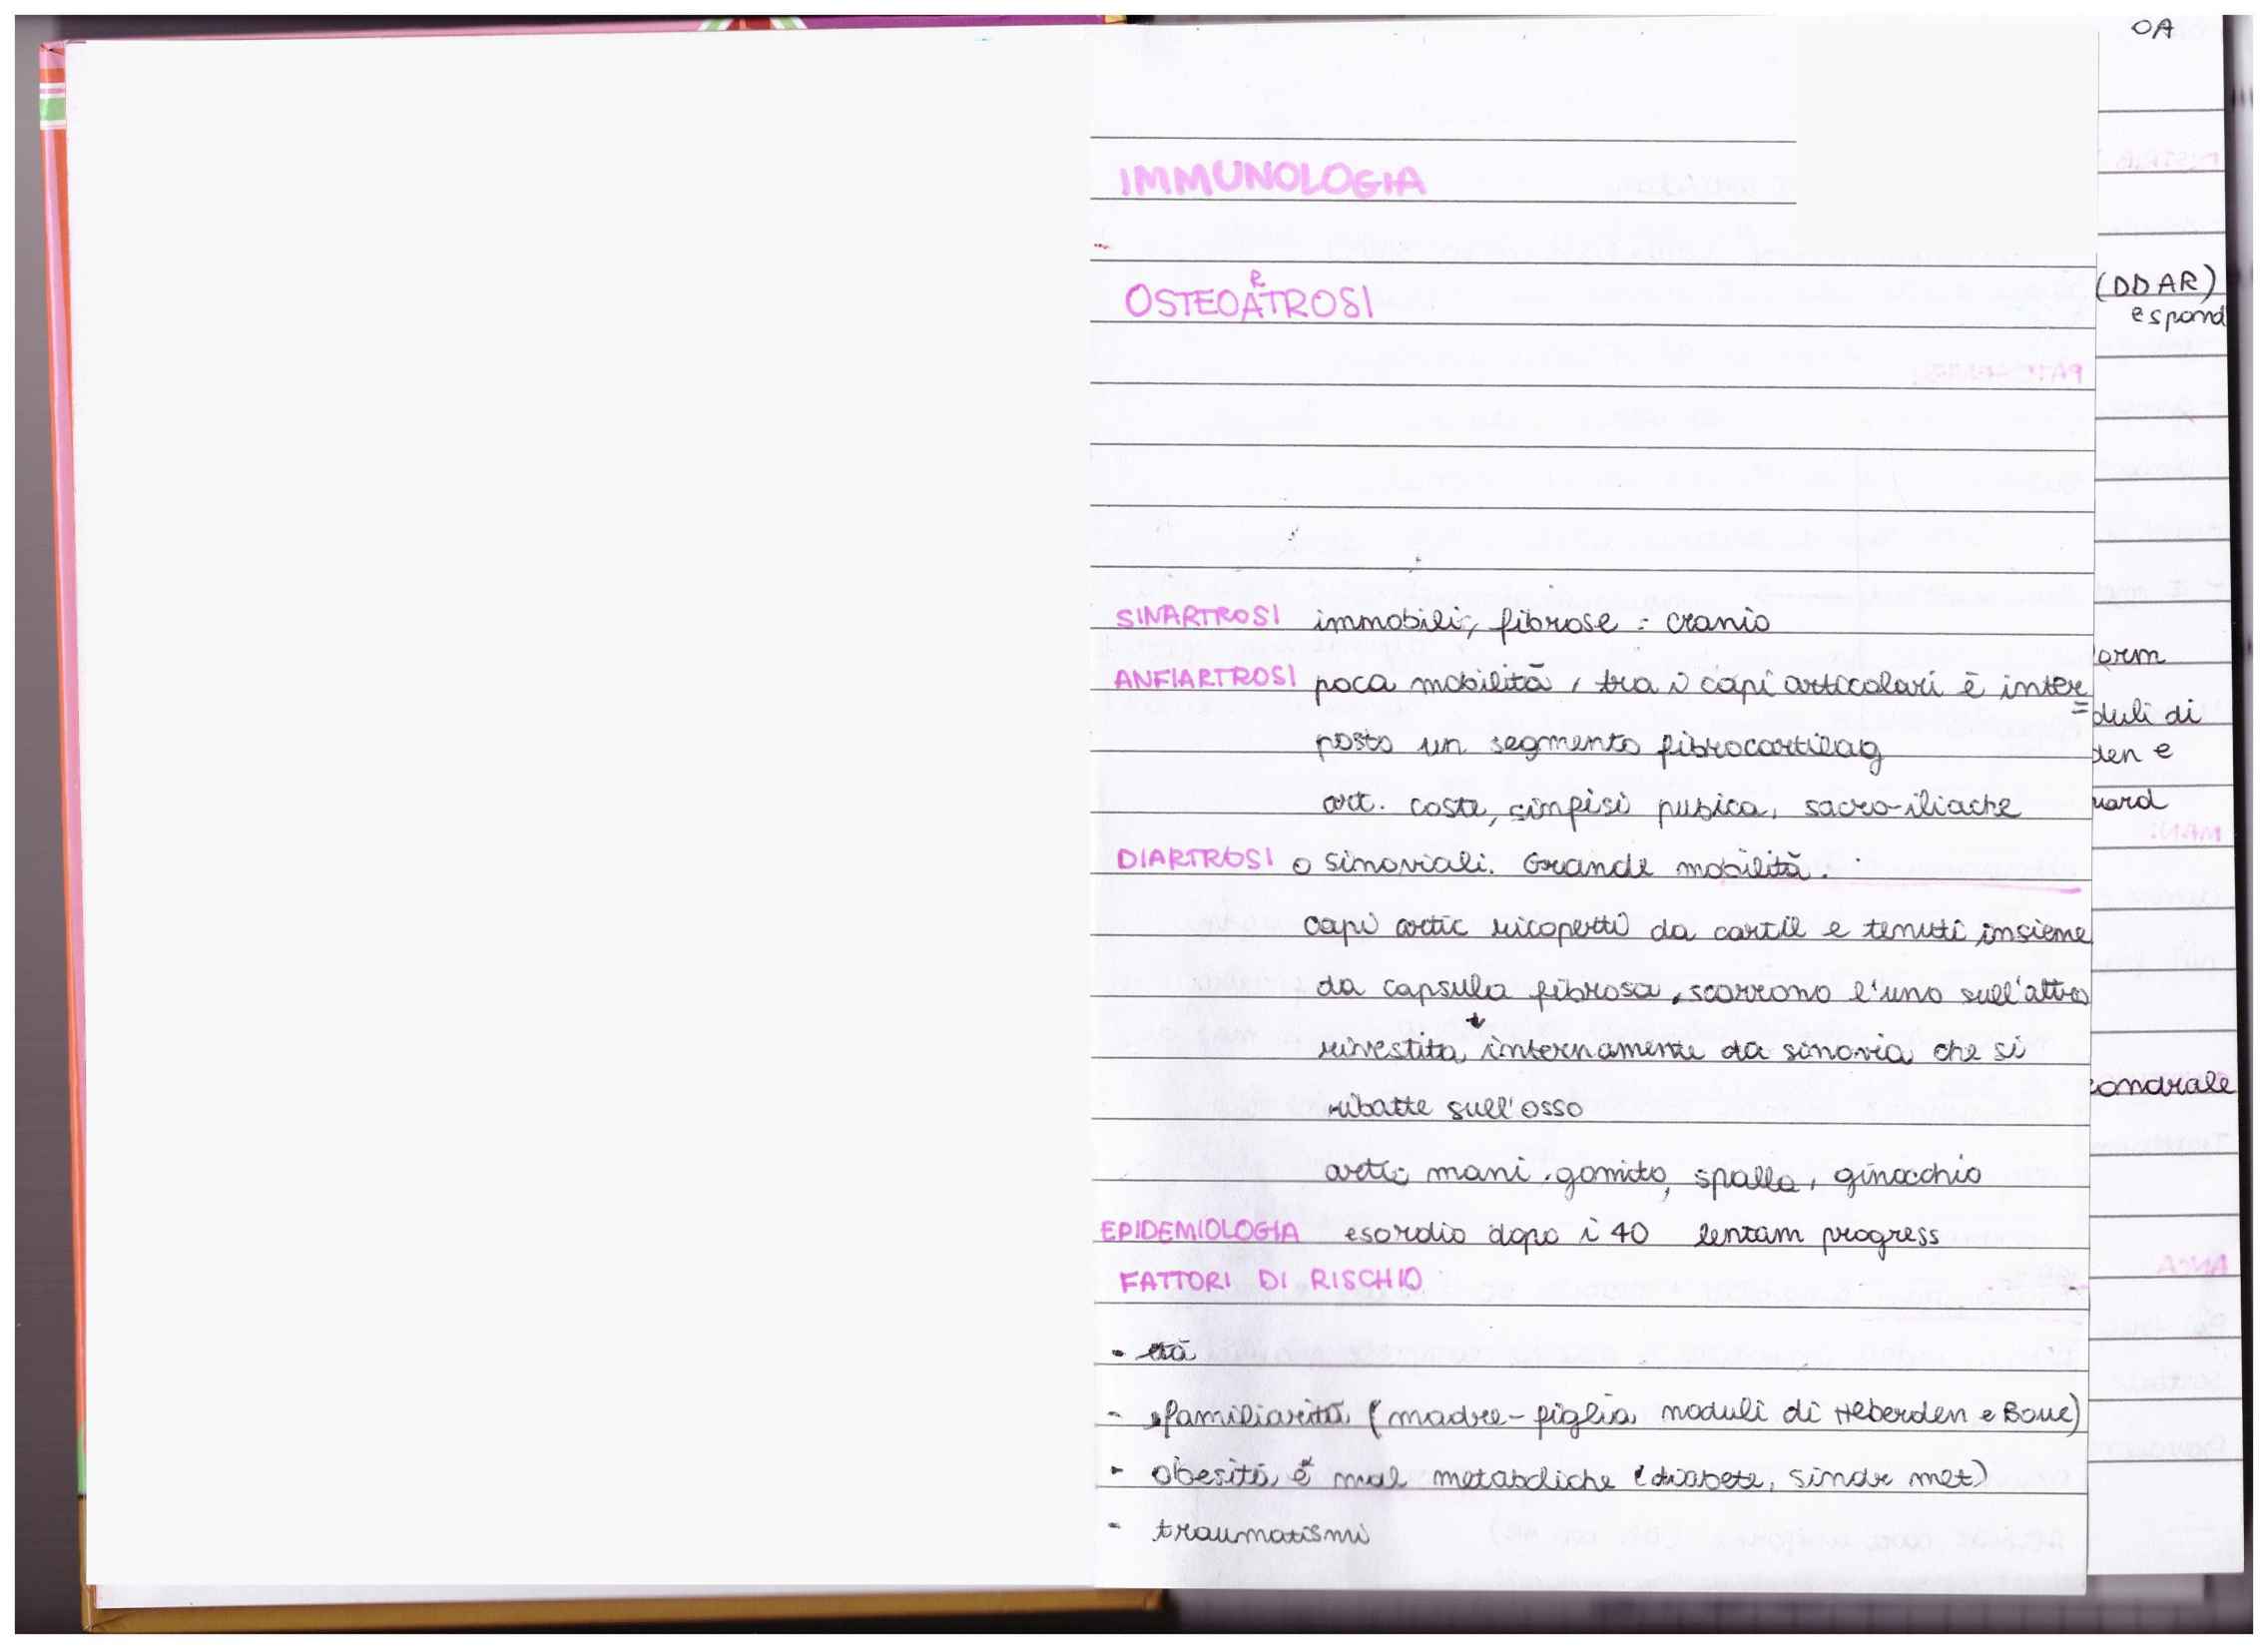 OA
IMMUNOLOGIA
OSTEOARTROSI
(DDAR)
espond
SINARTROSI immobili, fibrose : cranio
ANFIARTROSI poca mobilità, tra i capi articolari è inter
=
posto un segmento fibrocartilag
art. coste, sinfisi pubica, sacro-iliache
orm
duli di
den e
hard
DIARTROSI o sinoviali. Grande mobilità.
capi artic ricoperti da cartil e tenuti insieme
da capsula fibrosa, scorrono l'uno sull'altro
rivestita internamente da sinovia che si
ribatte sull'osso
condrale
artic mani, gomito, spalla, ginocchio
EPIDEMIOLOGIA esordio dopo i 40 lentam progress
FATTORI DI RISCHIO
- età
- familiarità (madre-figlia noduli di Heberden e Bouc)
- obesità e mal metaboliche (diabete, sindr met)
- traumatismi